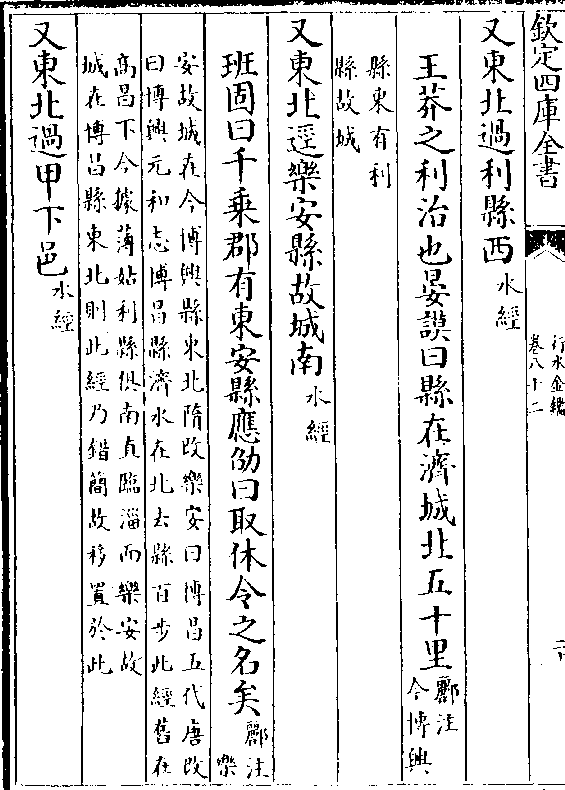 欽定四庫全書
行水金鑑
卷八十二
又東北過利縣西水經
王莽之利治也晏謨曰縣在濟城北五十里酈注
今博興
縣東有利
縣故城
又東北逕樂安縣故城南水經
班固曰千乗郡有東安縣應劭曰取休令之名矣酈注
樂
安故城在今博興縣東北隋改樂安曰博昌五代唐改
曰博興元和志博昌縣濟水在北去縣百步此經舊在
高昌下今據薄姑利縣俱南直臨淄而樂安故
城在博昌縣東北則此經乃錯簡故移置於此
又東北過甲下邑水經